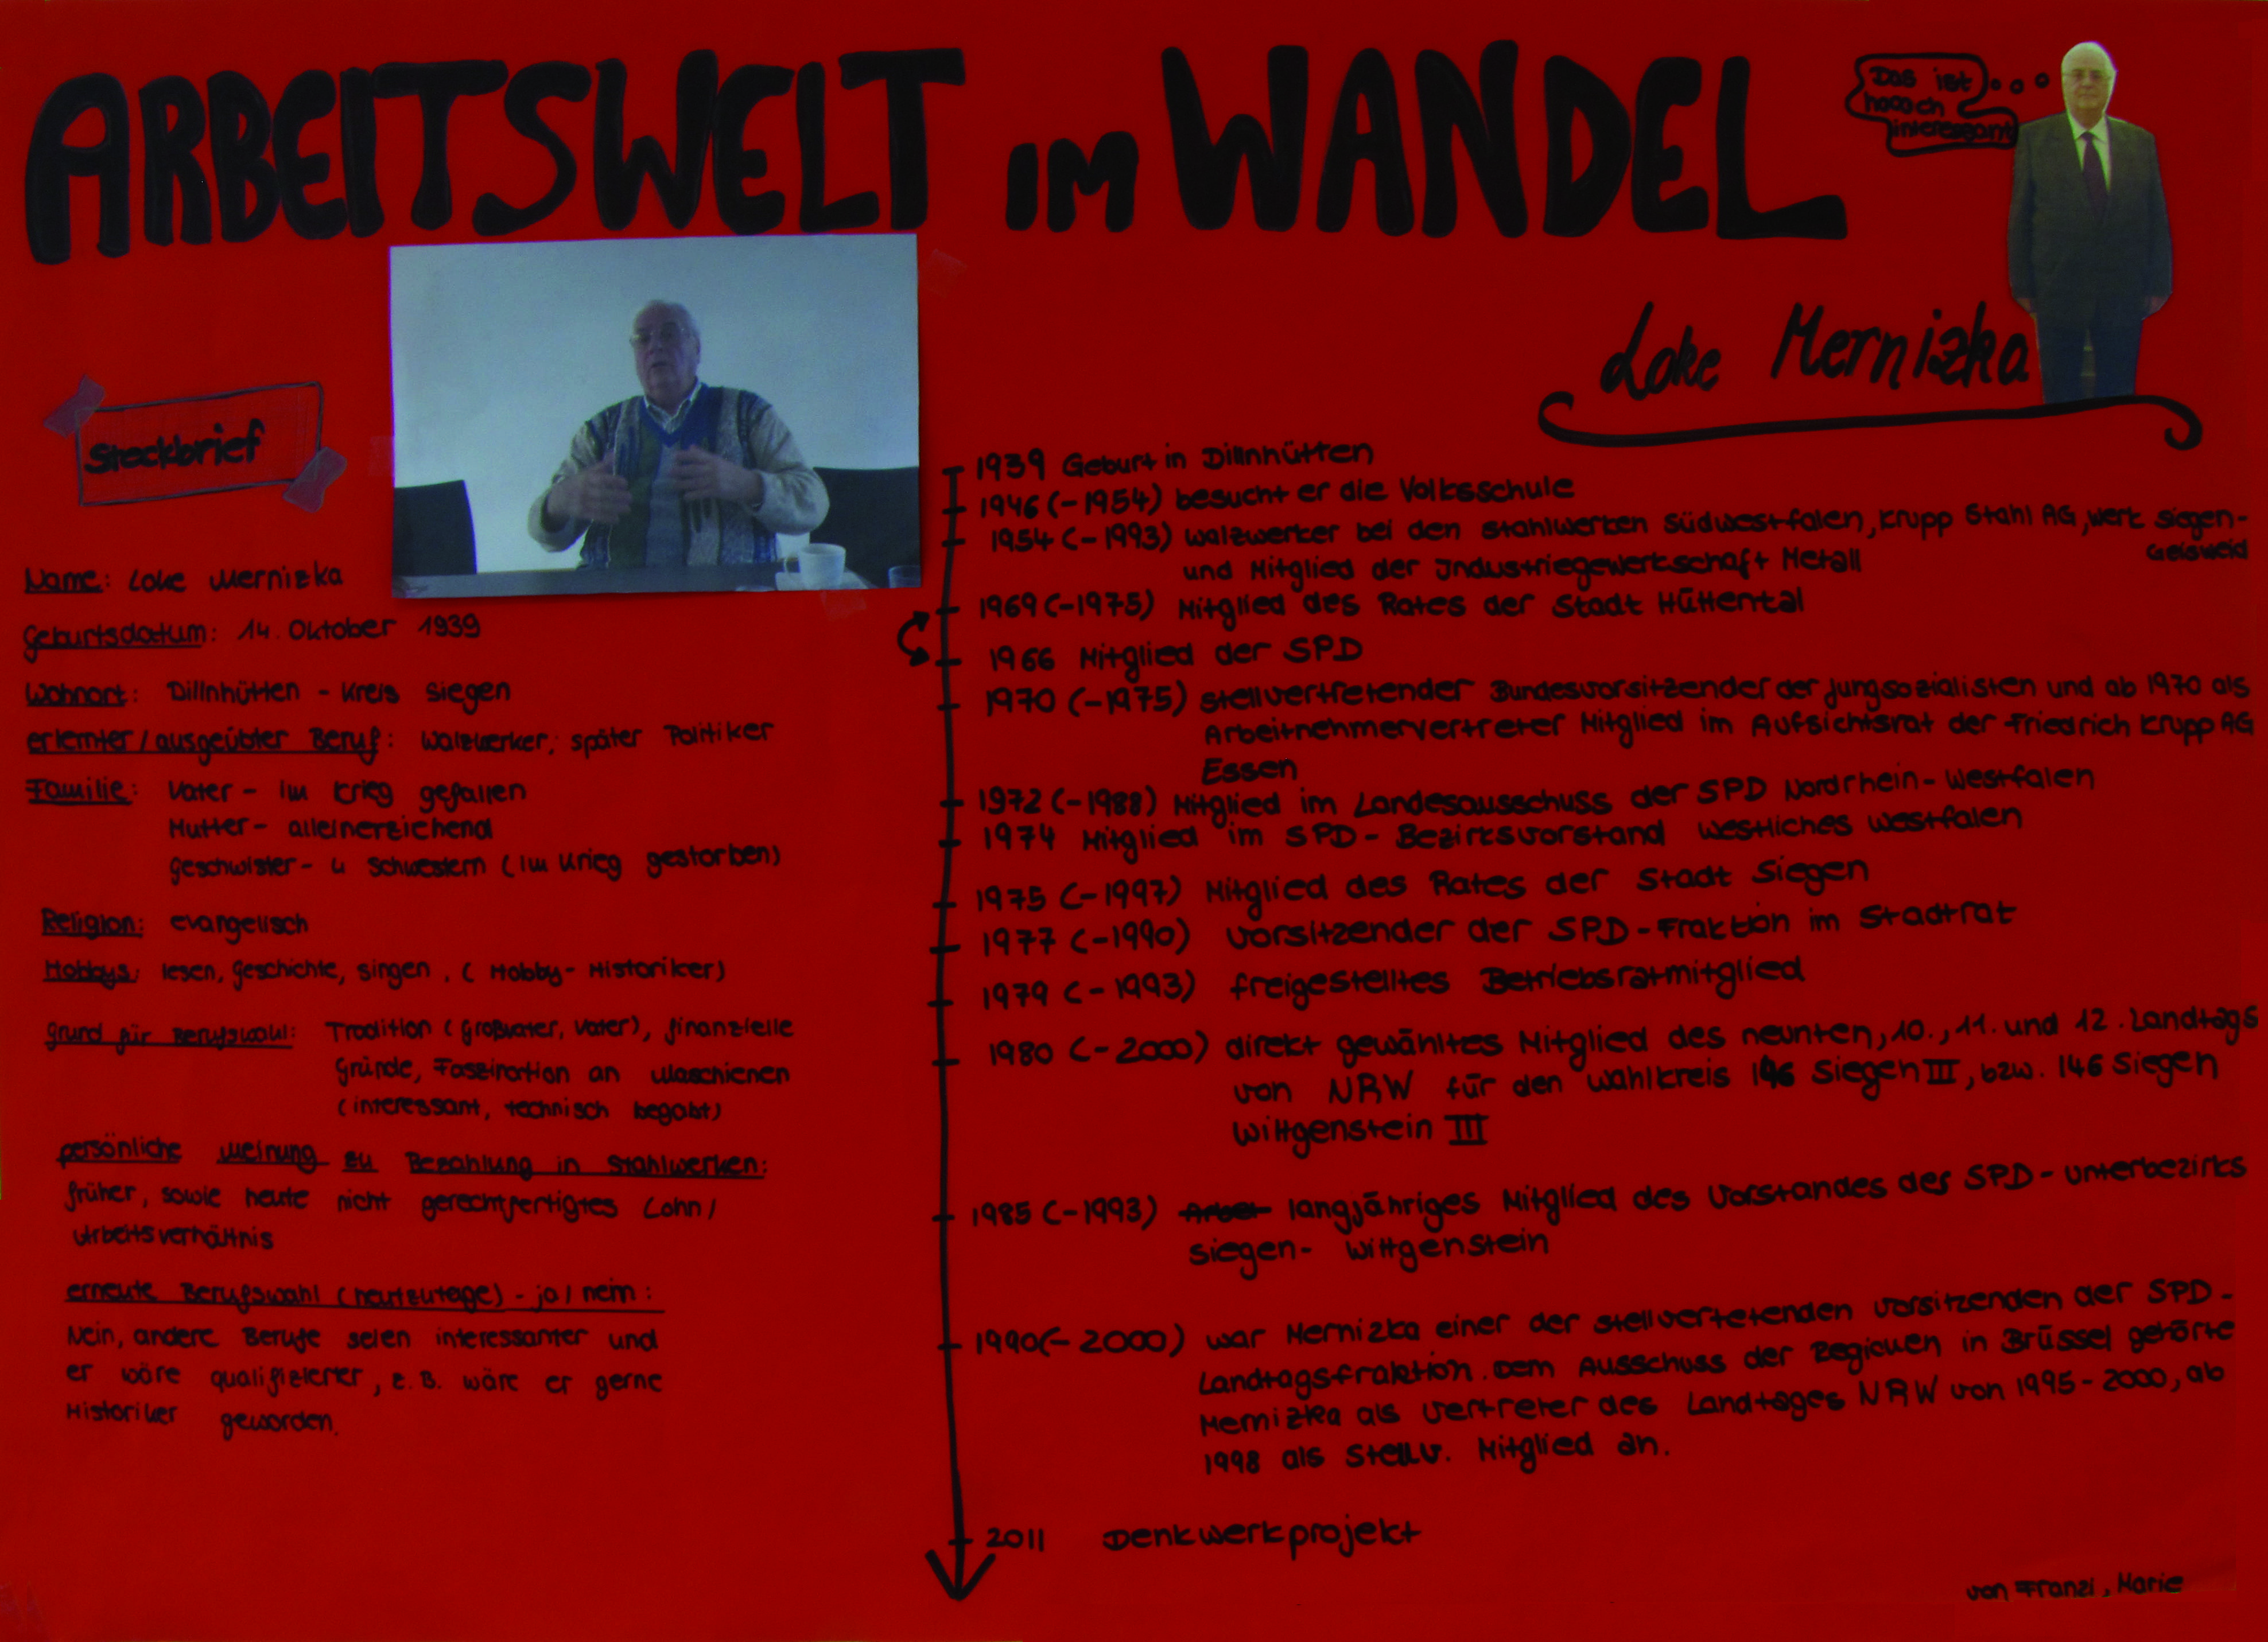 ARBEITSWELT IM WANDEL
Das ist
hoooch
interessant
Loke Mernizka
Steckbrief
Name: Loke Mernizka
Geburtsdatum: 14. Oktober 1939
Wohnort: Dillnhütten - Kreis Siegen
erlernter/ausgeübter Beruf: Walzwerker, später Politiker
Familie: Vater - im Krieg gefallen
Mutter - alleinerziehend
Geschwister - 4 Schwestern (im Krieg gestorben)
Religion: evangelisch
Hobbys: lesen, Geschichte, singen, (Hobby-Historiker)
Grund für Berufswahl: Tradition (Großvater, Vater), finanzielle
Gründe, Faszination an Maschienen
(interessant, technisch begabt)
persönliche Meinung zu Bezahlung in Stahlwerken:
früher, sowie heute nicht gerechtfertigtes Lohn/
Arbeitsverhältnis
erneute Berufswahl (heutzutage) - ja/nein:
Nein, andere Berufe seien interessanter und
er wäre qualifizierter, z.B. wäre er gerne
Historiker geworden.
1939 Geburt in Dillnhütten
1946 (-1954) besucht er die Volksschule
1954 (-1993) Walzwerker bei den Stahlwerken Südwestfalen, Krupp Stahl AG, Werk Siegen-
Geisweid
und Mitglied der Industriegewerkschaft Metall
1969 (-1975) Mitglied des Rates der Stadt Hüttental
1966 Mitglied der SPD
1970 (-1975) stellvertretender Bundesvorsitzender der Jungsozialisten und ab 1970 als
Arbeitnehmervertreter Mitglied im Aufsichtsrat der Friedrich Krupp AG
Essen
1972 (-1988) Mitglied im Landesausschuss der SPD Nordrhein-Westfalen
1974 Mitglied im SPD-Bezirksvorstand westliches Westfalen
1975 (-1997) Mitglied des Rates der Stadt Siegen
1977 (-1990) Vorsitzender der SPD-Fraktion im Stadtrat
1979 (-1993) freigestelltes Betriebsratmitglied
1980 (-2000) direkt gewähltes Mitglied des neunten, 10., 11. und 12. Landtags
von NRW für den Wahlkreis 146 Siegen III, bzw. 146 Siegen
Wittgenstein III
1985 (-1993) langjähriges Mitglied des Vorstandes des SPD-Unterbezirks
Siegen-Wittgenstein
1990 (-2000) war Mernizka einer der stellvertetenden Vorsitzenden der SPD-
Landtagsfraktion. Dem Ausschuss der Regionen in Brüssel gehörte
Mernizka als Vertreter des Landtages NRW von 1995-2000, ab
1998 als stellv. Mitglied an.
2011 Denkwerkprojekt
von Franzi, Marie